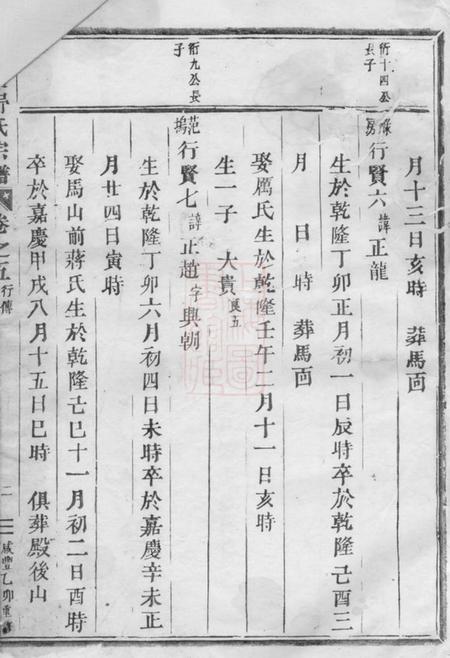 月十三日亥時　葬馬面
衍十四公
子
行賢六諱正龍
生於乾隆丁卯正月初一日辰時卒於乾隆己酉三
月　日　時　葬馬面
娶厲氏生於乾隆壬午二月十一日亥時
生一子　大貴良五
衍九公長
子
范塢
行賢七諱正趙字興朝
生於乾隆丁卯六月初四日未時卒於嘉慶辛未正
月廿四日寅時
娶馬山前蔣氏生於乾隆己巳十一月初二日酉時
卒於嘉慶甲戌八月十五日巳時　俱葬殿後山
氏宗譜
卷之五行傳
二
咸豐乙卯重修